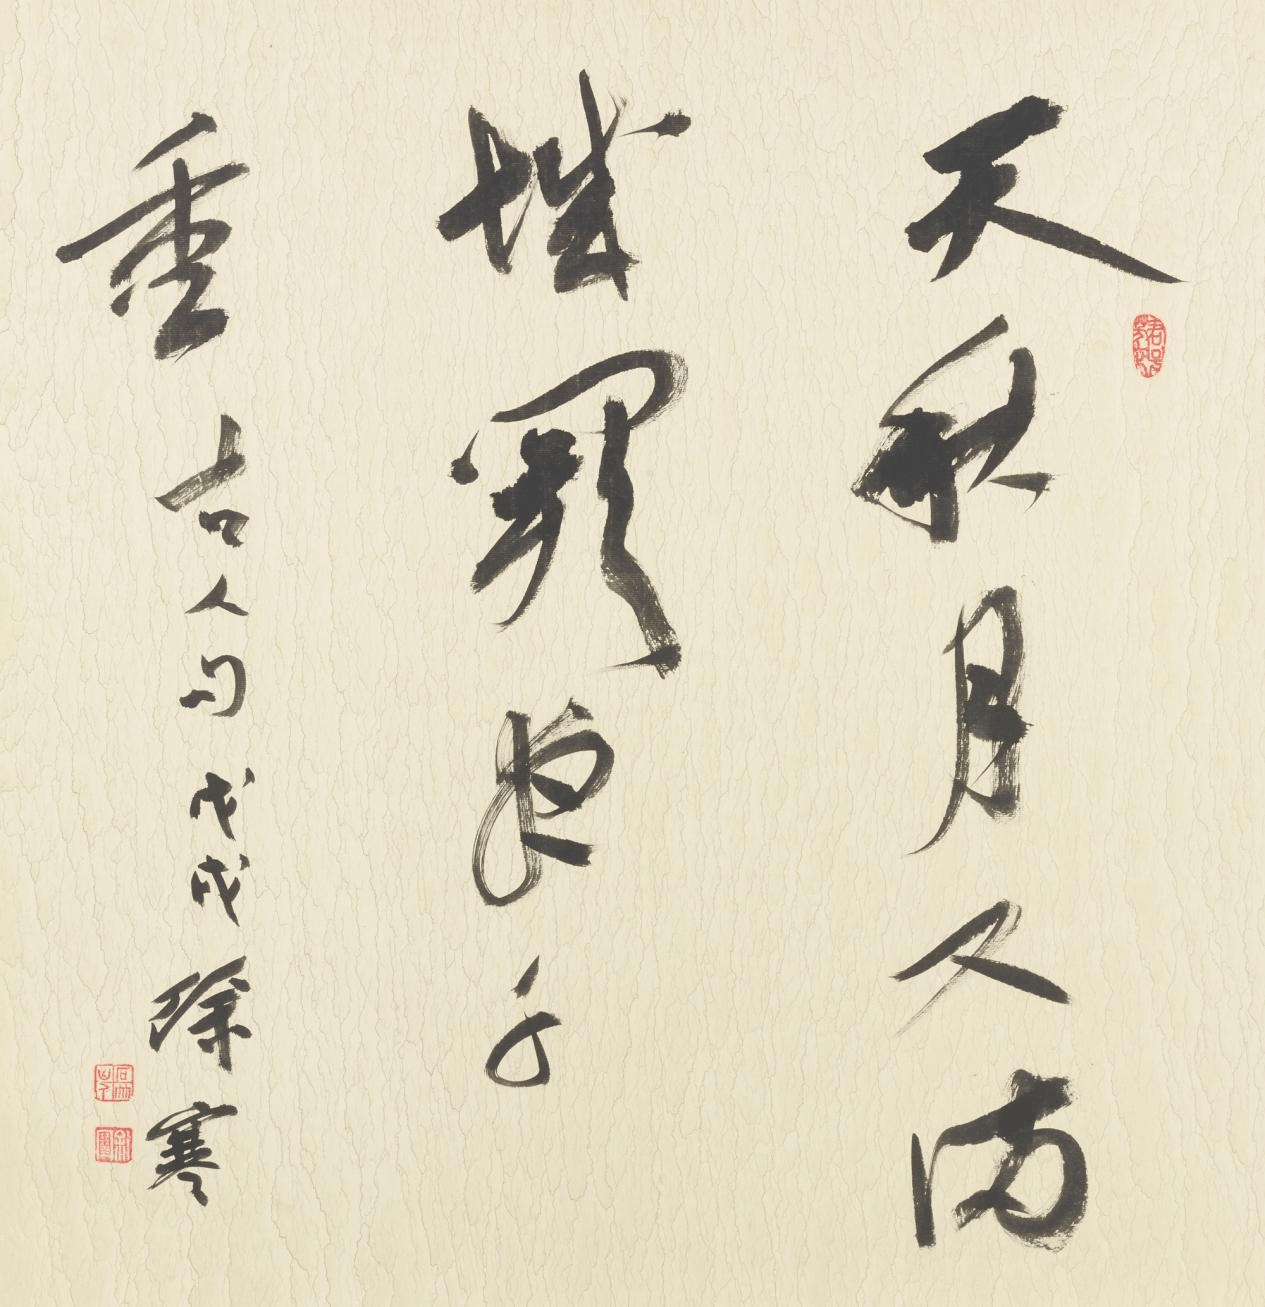 天秋月又满
城阙夜千
重 古人句 戊戌 徐寒